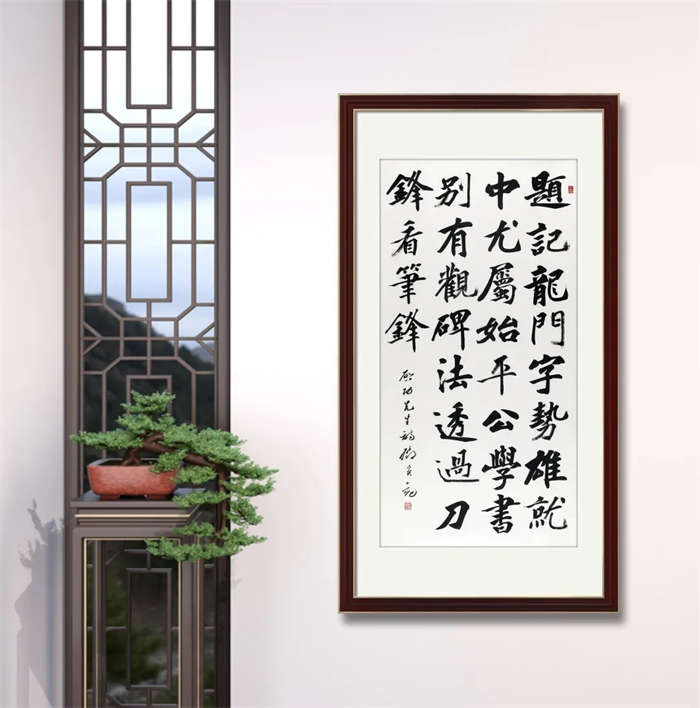 題記龍門字勢雄就
中尤屬始平公學書
別有觀碑法透過刀
鋒看筆鋒
啟功先生